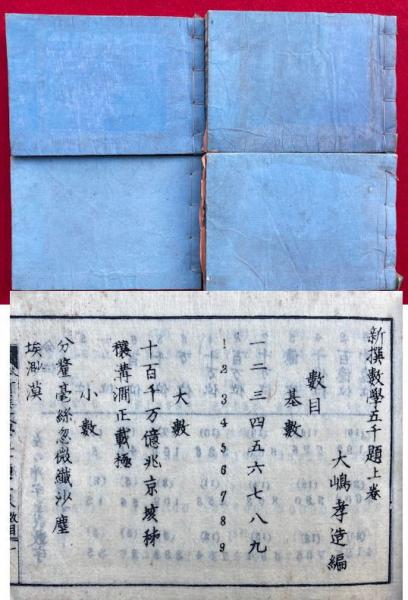 新撰數學五千題上卷
大嶋孝造編
數目
基數
一二三四五六七八九
1 2 3 4 5 6 7 8 9
大數
十百千万億兆京垓秭
穰溝澗正載極
小數
分釐毫絲忽微纖沙塵
埃渺漠